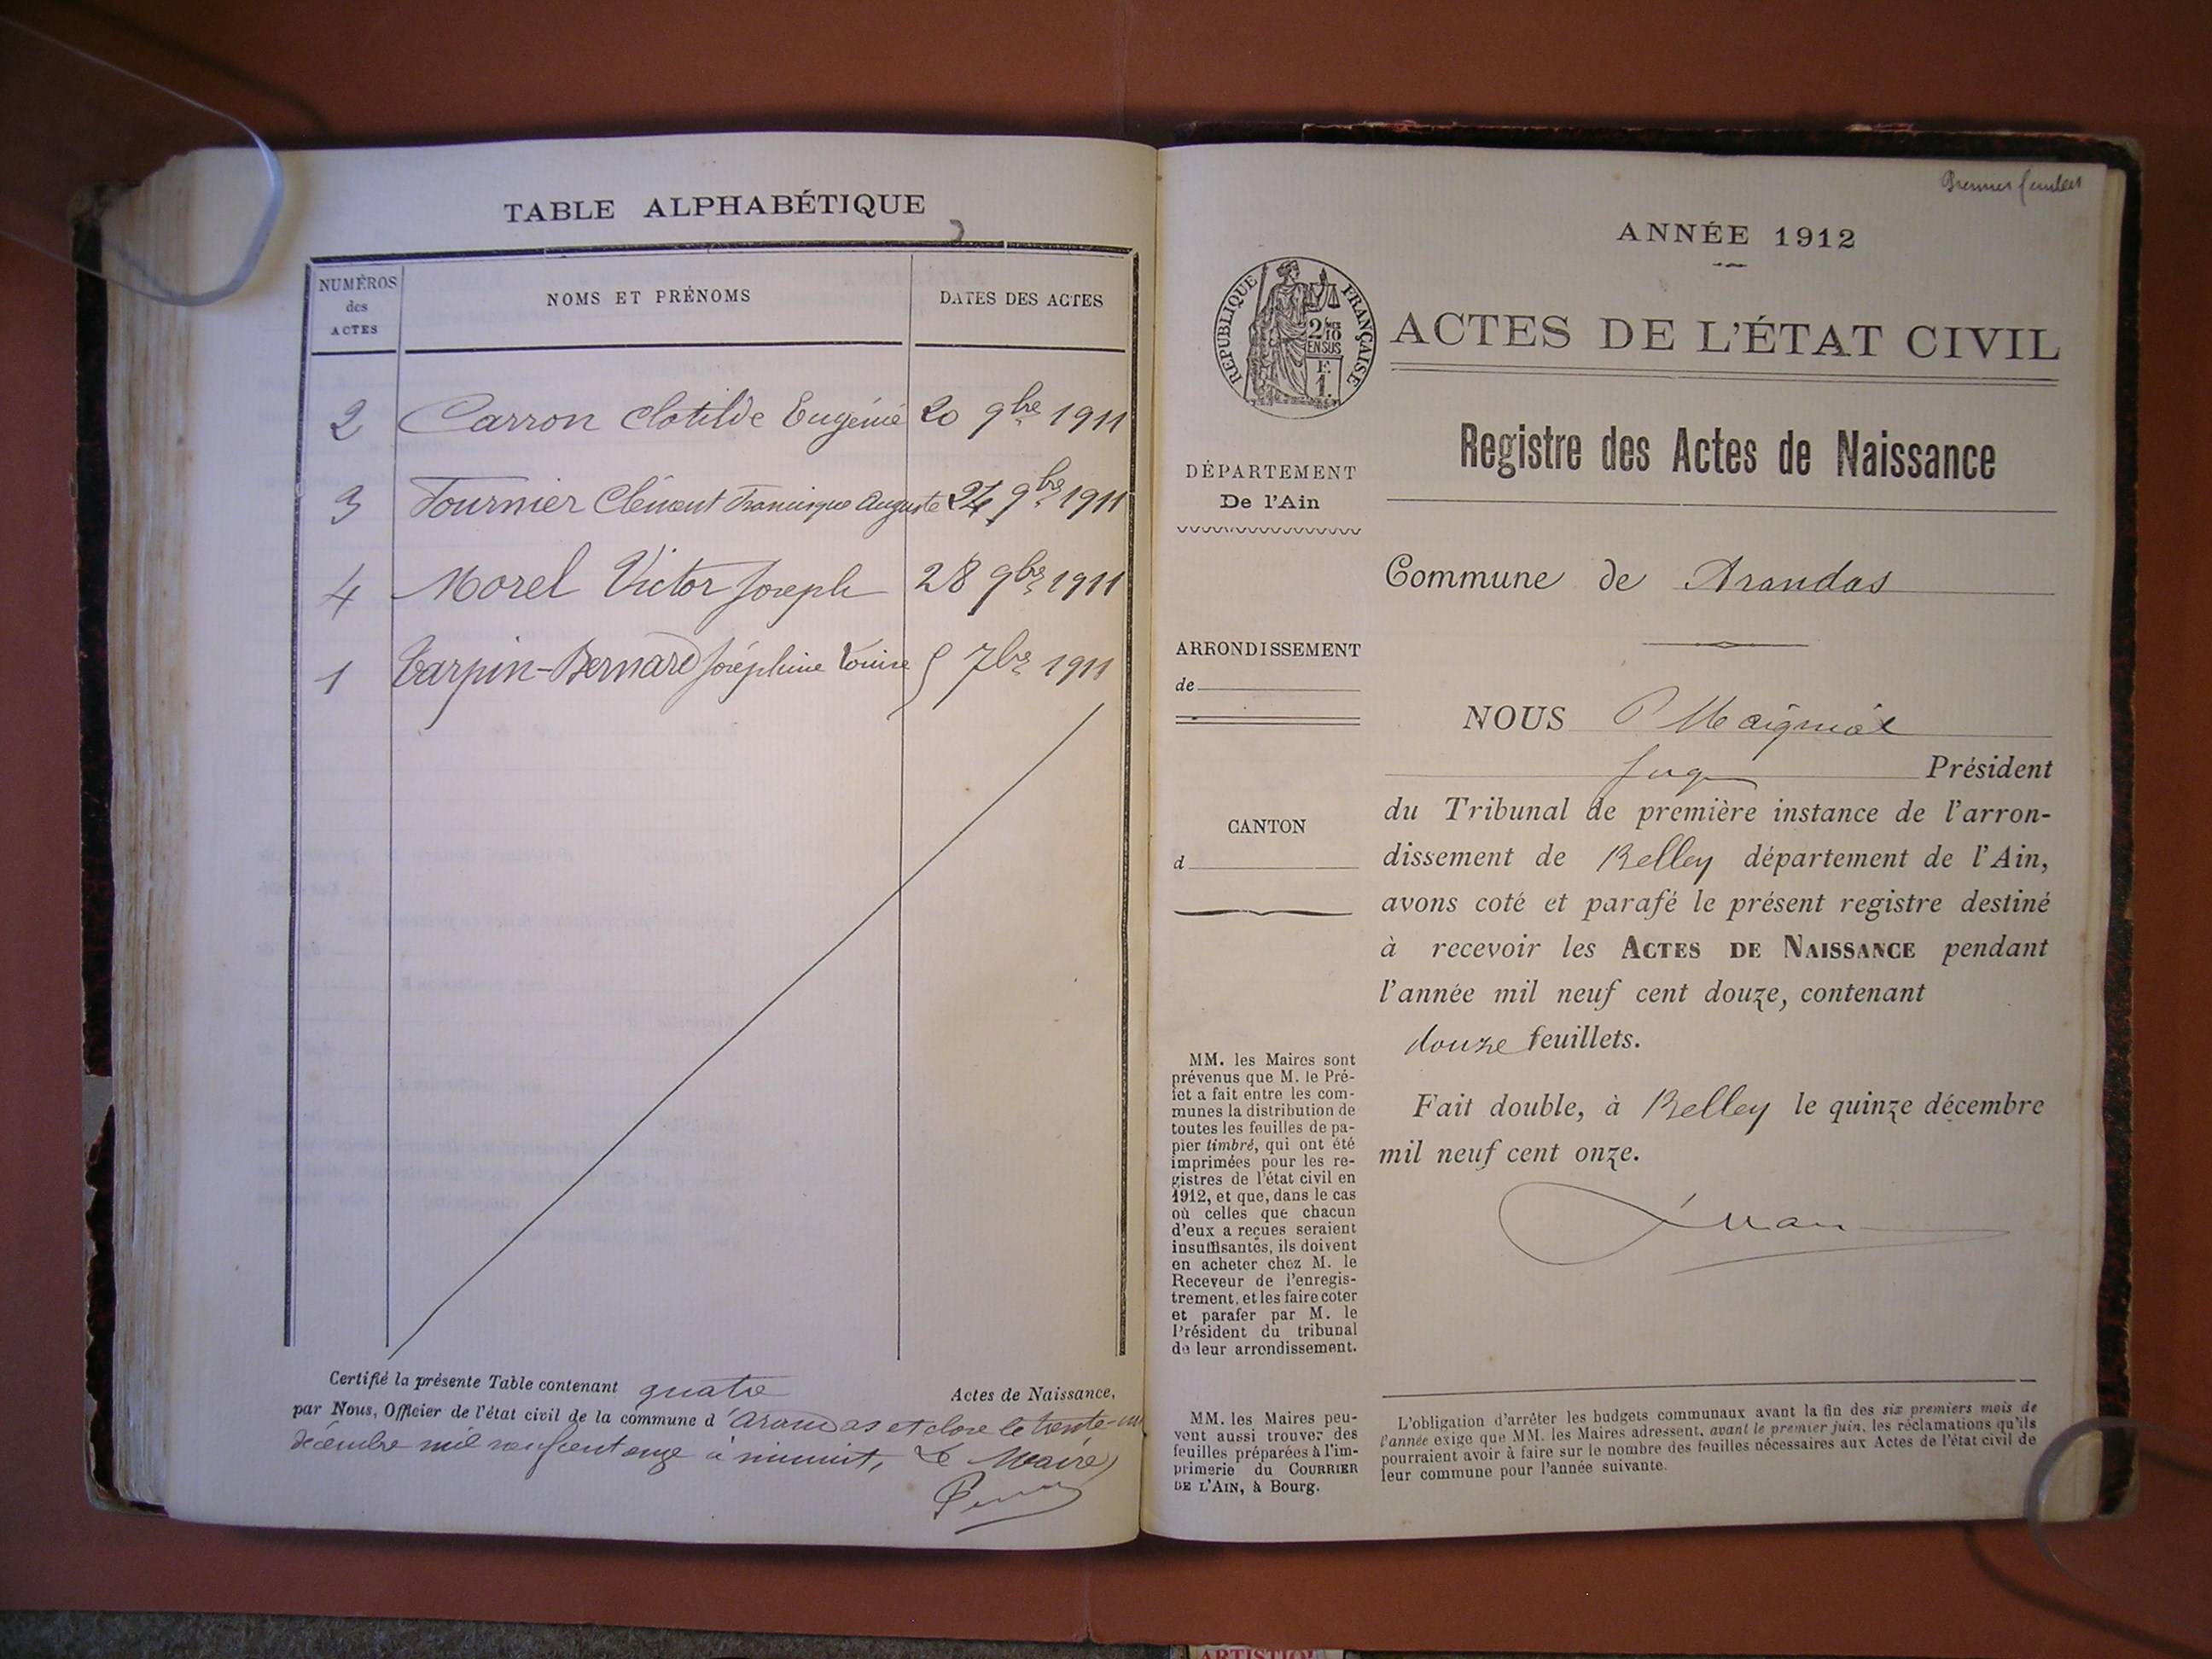 TABLE ALPHABÉTIQUE
NUMÉROS
des
ACTES
NOMS ET PRÉNOMS
DATES DES ACTES
2 Carron Clotilde Eugénie 20 9bre 1911
3 Fournier Clément Francisque Auguste 24 9bre 1911
4 Morel Victor Joseph 28 9bre 1911
1 Tarpin-Bernard Joséphine Louise 5 7bre 1911
Certifié la présente Table contenant quatre Actes de Naissance,
par Nous, Officier de l'état civil de la commune d'Arandas et close le trente-un
décembre mil neuf cent onze à minuit, Le Maire,
Premier feuillet
ANNÉE 1912
RÉPUBLIQUE FRANÇAISE
2/10
EN SUS
F.
1.
ACTES DE L'ÉTAT CIVIL
Registre des Actes de Naissance
DÉPARTEMENT
De l'Ain
Commune de Arandas
ARRONDISSEMENT
de
CANTON
d
NOUS
Juge Président
du Tribunal de première instance de l'arron-
dissement de Belley département de l'Ain,
avons coté et parafé le présent registre destiné
à recevoir les ACTES DE NAISSANCE pendant
l'année mil neuf cent douze, contenant
douze feuillets.
Fait double, à Belley le quinze décembre
mil neuf cent onze.
MM. les Maires sont
prévenus que M. le Pré-
fet a fait entre les com-
munes la distribution de
toutes les feuilles de pa-
pier timbré, qui ont été
imprimées pour les re-
gistres de l'état civil en
1912, et que, dans le cas
où celles que chacun
d'eux a reçues seraient
insuffisantes, ils doivent
en acheter chez M. le
Receveur de l'enregis-
trement, et les faire coter
et parafer par M. le
Président du tribunal
de leur arrondissement.
MM. les Maires peu-
vent aussi trouver des
feuilles préparées à l'im-
primerie du COURRIER
DE L'AIN, à Bourg.
L'obligation d'arrêter les budgets communaux avant la fin des six premiers mois de
l'année exige que MM. les Maires adressent, avant le premier juin, les réclamations qu'ils
pourraient avoir à faire sur le nombre des feuilles nécessaires aux Actes de l'état civil de
leur commune pour l'année suivante.